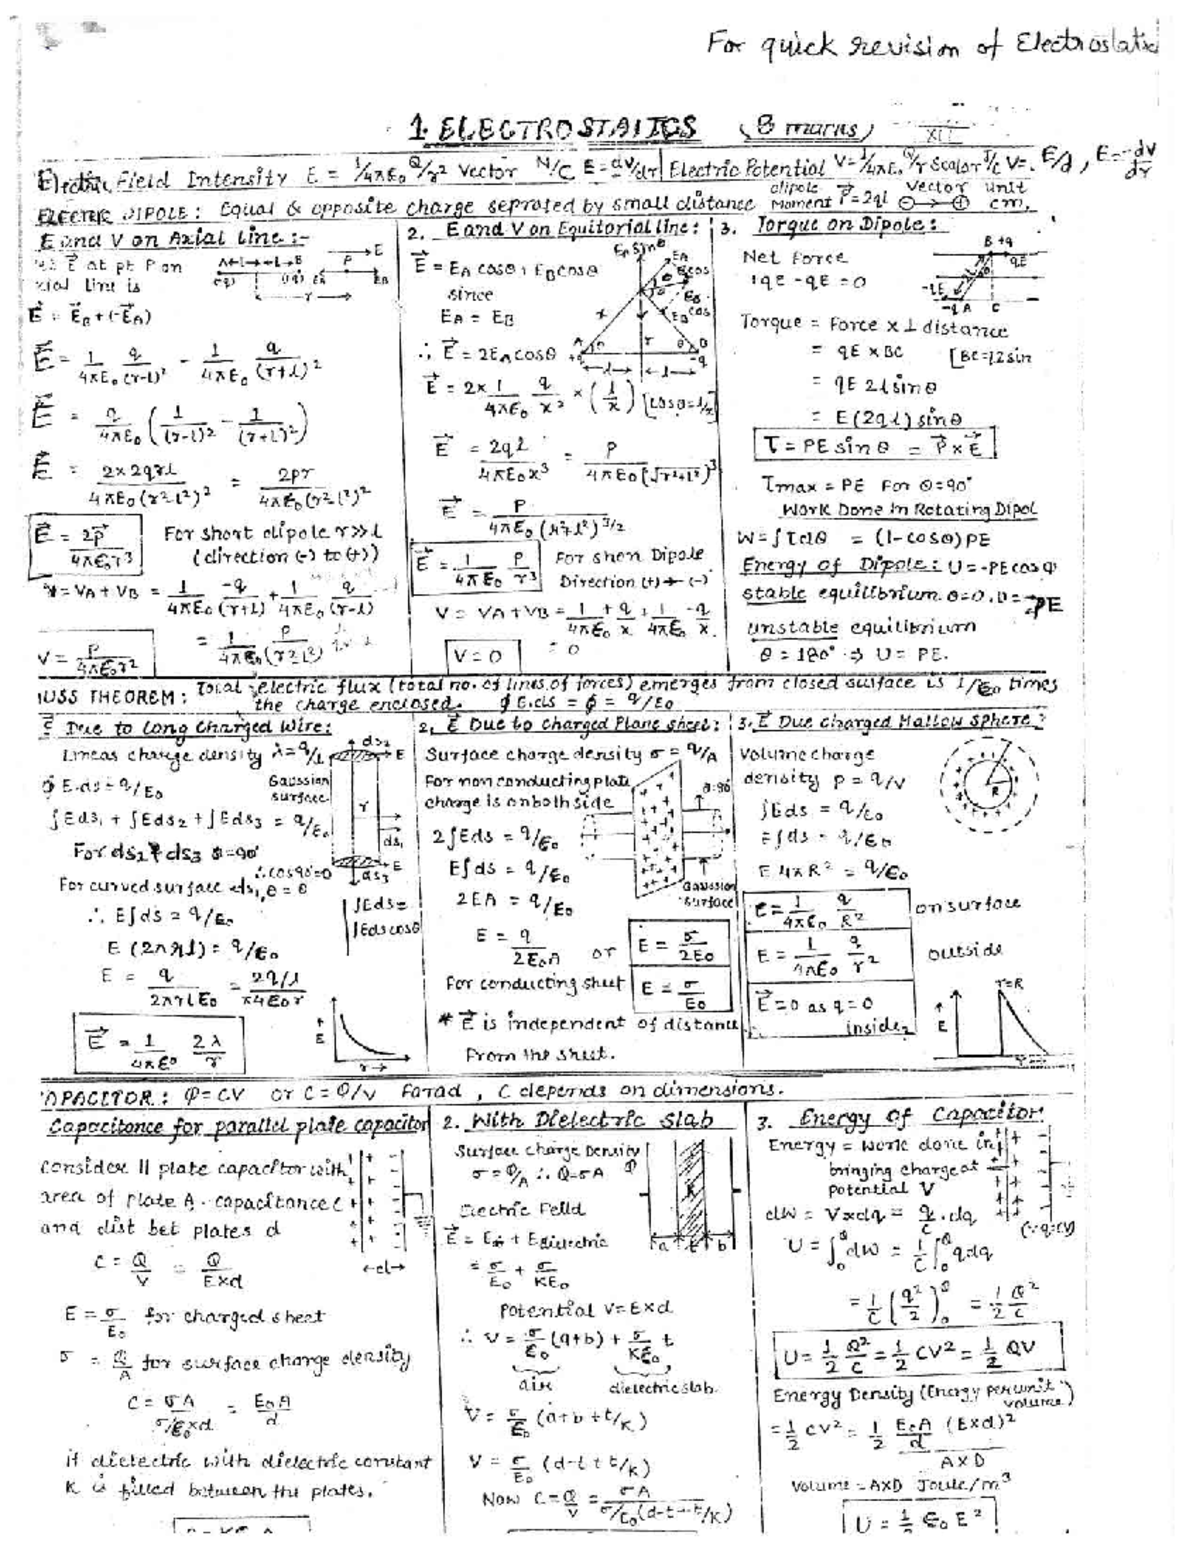 For quick revision of Electrostatic
1. ELECTROSTAITCS (8 marks) XII
Electric Field Intensity E = 1/4πε₀ Q/r² Vector N/C E = -dV/dr | Electric Potential V = 1/4πε₀ Q/r Scalar J/C V = E/d, E = -dV/dr
ELECTRIC DIPOLE : Equal & opposite charge seprated by small distance dipole Moment P⃗ = 2ql Vector unit cm.
E and V on Axial line :-
E⃗ at pt P on
axial line is
E⃗ = E⃗B + (-E⃗A)
E⃗ = 1/4πε₀ q/(r-l)² - 1/4πε₀ q/(r+l)²
E⃗ = q/4πε₀ (1/(r-l)² - 1/(r+l)²)
E⃗ = 2×2qrl/4πε₀(r²-l²)² = 2pr/4πε₀(r²-l²)²
E⃗ = 2p⃗/4πε₀r³ For short dipole r>>l
(direction (-) to (+))
V = VA + VB = 1/4πε₀ -q/(r+l) + 1/4πε₀ q/(r-l)
= 1/4πε₀ P/(r²-l²)
V = P/4πε₀r²
2. E and V on Equitorial line :
E⃗ = EA cosθ + EB cosθ
since
EA = EB
∴ E⃗ = 2EA cosθ
E⃗ = 2× 1/4πε₀ q/x² × (l/x) [cosθ = l/x]
E⃗ = 2ql/4πε₀x³ = P/4πε₀(√r²+l²)³
E⃗ = P/4πε₀(r²+l²)^3/2
E⃗ = 1/4πε₀ P/r³ For short Dipole
Direction (+) → (-)
V = VA + VB = 1/4πε₀ +q/x + 1/4πε₀ -q/x
= 0
V = 0
3. Torque on Dipole :
Net Force
+qE - qE = 0
Torque = Force x ⊥ distance
= qE x BC [BC = l2 sin
= qE 2l sinθ
= E(2ql) sinθ
τ = PE sinθ = P⃗ × E⃗
τmax = PE For θ = 90°
Work Done In Rotating Dipol
W = ∫τdθ = (1 - cosθ) PE
Energy of Dipole : U = -PE cosθ
stable equilibrium θ = 0, U = -PE
unstable equilibrium
θ = 180° ⇒ U = PE.
USS THEOREM : Total electric flux (total no. of lines of forces) emerges from closed surface is 1/ε₀ times
the charge enclosed. ∮E.ds = ϕ = q/ε₀
E⃗ Due to Long Charged Wire :
Linear charge density λ = q/l
∮E.ds = q/ε₀ Gaussian surface
∫Eds₁ + ∫Eds₂ + ∫Eds₃ = q/ε₀
For ds₂ & ds₃ θ = 90°
∴ cos90° = 0
For curved surface ds₁, θ = 0
∴ E∫ds = q/ε₀ ∫Eds =
∫Eds cosθ
E (2πrl) = q/ε₀
E = q/2πrlε₀ = 2q/l/π4ε₀r
E⃗ = 1/4πε₀ 2λ/r
2. E⃗ Due to charged Plane sheet :
Surface charge density σ = q/A
For non conducting plate
charge is on both side
2∫Eds = q/ε₀
E∫ds = q/ε₀
2EA = q/ε₀
Gaussian surface
E = q/2ε₀A or E = σ/2ε₀
For conducting sheet E = σ/ε₀
* E⃗ is independent of distance
From the sheet.
3. E⃗ Due charged Hallow sphere :
Volume charge
density ρ = q/v
∫Eds = q/ε₀
E∫ds = q/ε₀
E 4πR² = q/ε₀
E = 1/4πε₀ q/R² on surface
E = 1/4πε₀ q/r² outside
E⃗ = 0 as q = 0 inside
r=R
APACITOR : Q = CV or C = Q/V Farad, C depends on dimensions.
Capacitance for parallel plate capacitor
Consider || plate capacitor with
area of plate A. capacitance C
and dist bet plates d
C = Q/V = Q/E×d
E = σ/ε₀ for charged sheet
σ = Q/A for surface charge density
C = σA/σ/ε₀×d = ε₀A/d
if dielectric with dielectric constant
K is filled between the plates.
2. With Dielectric Slab
Surface Charge Density
σ = Q/A ∴ Q = σA
Electric Feild
E⃗ = Eair + Edielectric
= σ/ε₀ + σ/Kε₀
Potential V = E×d
∴ V = σ/ε₀ (a+b) + σ/Kε₀ t
air dielectric slab
V = σ/ε₀ (a+b+t/K)
V = σ/ε₀ (d-t+t/K)
Now C = Q/V = σA/σ/ε₀(d-t+t/K)
3. Energy of Capacitor
Energy = work done in
bringing charge at
potential V
dW = V×dq = q/C . dq
(∵ q = CV)
U = ∫₀^Q dW = 1/C ∫₀^Q q dq
= 1/C (q²/2)₀^Q = 1/2 Q²/C
U = 1/2 Q²/C = 1/2 CV² = 1/2 QV
Energy Density (Energy per unit volume)
= 1/2 CV² = 1/2 ε₀A/d (E×d)²/A×D
Volume = A×D Joule/m³
U = 1/2 ε₀ E²